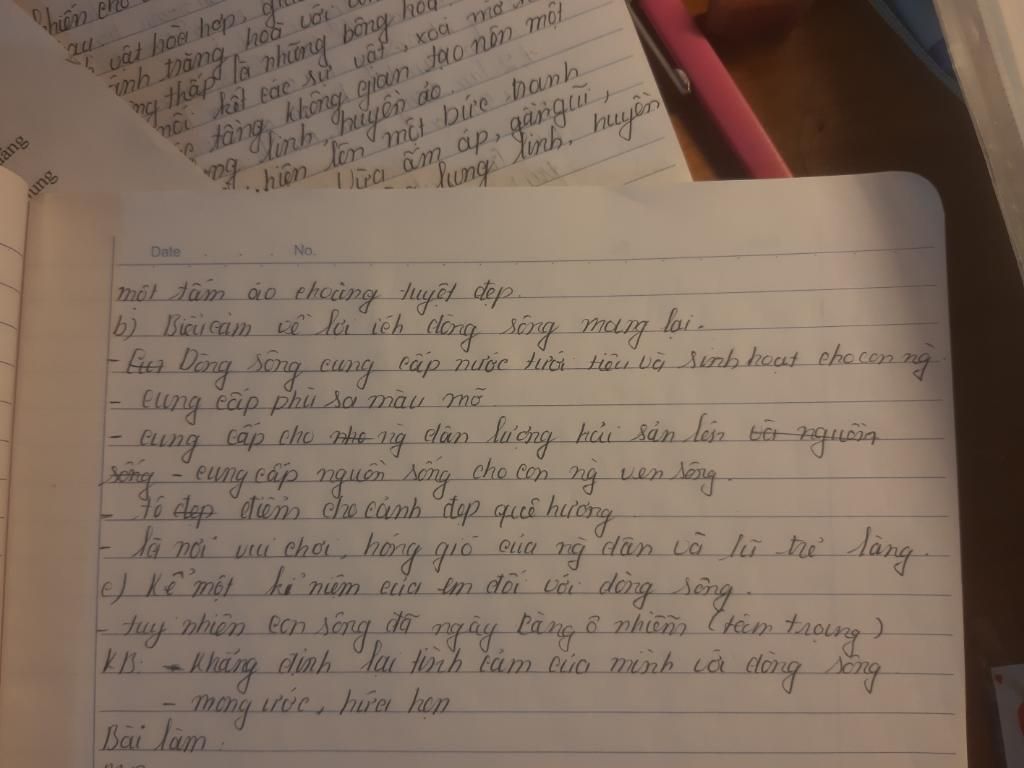 vật hòa hợp,
ánh trăng hòa với
thấp là những bông hoa
kết các sự vật, xoá mờ
tầng không gian tạo nên một
linh, huyền ảo.
hiện lên một bức tranh
Vừa ấm áp, gần gũi,
lung linh. huyền
Date . . . No.
một tấm áo choàng tuyệt đẹp.
b) Biểu cảm về lợi ích dòng sông mang lại.
- Dòng sông cung cấp nước tưới tiêu và sinh hoạt cho con ng`
- cung cấp phù sa màu mỡ
- cung cấp cho ng` dân lượng hải sản lớn và nguồn
sống - cung cấp nguồn sống cho con ng` ven sông.
- tô đẹp điểm cho cảnh đẹp quê hương
- là nơi vui chơi, hóng gió của ng` dân và lũ trẻ làng.
c) Kể một kỉ niệm của em đối với dòng sông.
- tuy nhiên con sông đã ngày càng ô nhiễm (trầm trọng)
KB: - Khẳng định lại tình cảm của mình với dòng sông
- mong ước, hứa hẹn
Bài làm: